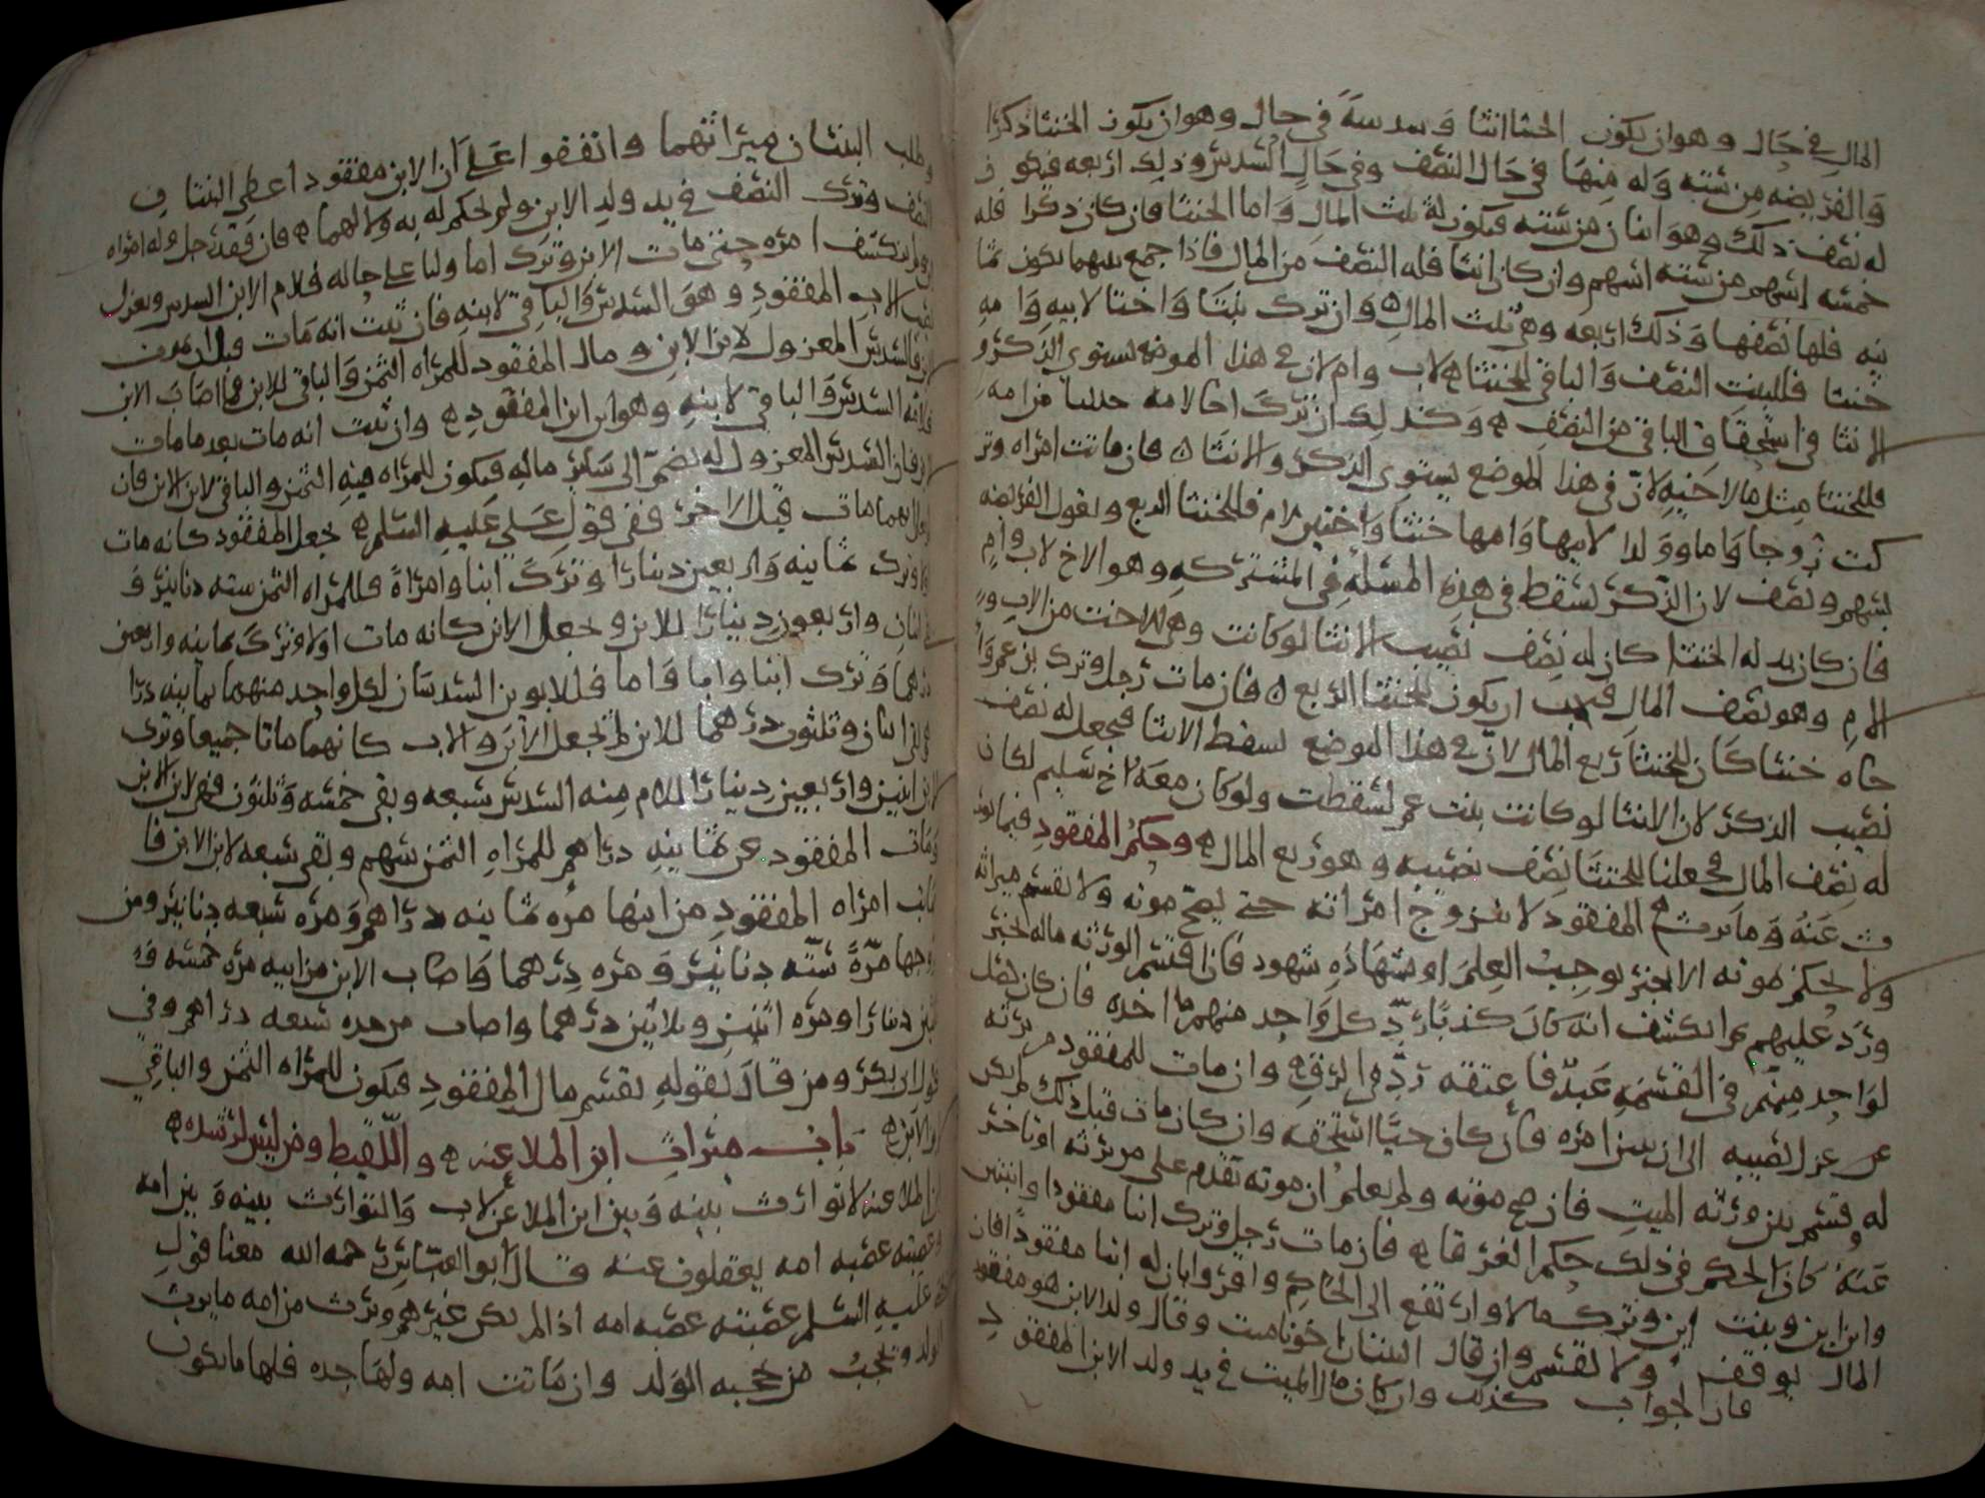 المال في حال وهو ان يكون الخنثا انثا وسدسه في حال وهو ان يكون الخنثا ذكرا
والفريضه من سته وله منها في حال النصف وفي حال السدس وذلك اربعه فيكون
له نصف ذلك وهو اثنان من سته فيكون له ثلث المال واما الخنثا فان كان ذكرا فله
خمسه اسهم من سته اسهم وان كان انثا فله النصف من المال فاذا جمع بينهما يكون ثما
نيه فلها نصفها وذلك اربعه وهي ثلث المال وان ترك بنتا واختا لابيه وامه
خنثا فللبنت النصف والباقي للخنثا لاب وام لان في هذا الموضع يستوي الذكر و
الانثا في استحقاق الباقي من النصف وكذلك ان ترك اخا لامه من امه
فللخنثا مثل ما لاخيه لان في هذا الموضع يستوي الذكر والانثا فان ماتت امراه وتر
كت زوجا واما وولدا لابيها وامها خنثا واختين لام فللخنثا الربع ويقول الفريضه
بسهم ونصف لان الذكر يسقط في هذه المسئله في المشتركه وهو الاخ لاب وام
فان كان بدله الخنثا كان له نصف نصيب الانثا لو كانت وهي الاخت من الاب و
الام وهو نصف المال فيجب ان يكون للخنثا الربع فان مات رجل وترك بن عم وا
خاه خنثا كان للخنثا ربع المال لان في هذا الموضع يسقط الانثا فيجعل له نصف
نصيب الذكر لان الانثا لو كانت بنت عم لسقطت ولو كان معه اخ سليم لكان
له نصف المال فجعلنا للخنثا نصف نصيبه وهو ربع المال وحكم المفقود فيما يور
ث عنه وما يرث المفقود لا تزوج امراته حتى يصح موته ولا يقسم ميراثه
ولا يحكم بموته الا بخبر يوجب العلم او بشهاده شهود فان اقتسم الورثه ماله لخبر
ورد عليهم وانكشف انه كان كذبا رد كل واحد منهم ما اخذه فان كان حصل
لواحد منهم في القسمه عبد فاعتقه رد في الرق وان مات للمفقود من يرثه
عزل نصيبه الى ان يتبين امره فان كان حيا استحقه وان كان مات قبل ذلك لم يكن
له وقسم بين ورثه الميت فان صح موته ولم يعلم ان موته تقدم على من يرثه او تاخر
عنه كان الحكم في ذلك حكم الغرقا فان مات رجل وترك ابنا مفقودا وابنتين
وابن ابن وبنت ابن وترك مالا وارتفع الى الحاكم واقروا بان له ابنا مفقودا فان
المال يوقف ولا يقسم وان قال البنتان اخونا ميت وقال ولد الابن هو مفقود
فان الجواب كذلك وان كان مال الميت في يد ولد الابن المفقود
وطلب البنتان ميراثهما واتفقوا على ان الابن مفقود اعطي البنتان
النصف وترك النصف في يد ولد الابن ولم يحكم له به ولا لهما فان فقد رجل وله امراه
ولم يكشف امره حتى مات الابن وترك اما وابنا على حاله فلام الابن السدس ويعزل
نصيب الاب المفقود وهو السدس والباقي لابنه فان ثبت انه مات قبل ابنه
فالسدس المعزول لابن الابن ومال المفقود للمراه الثمن والباقي للابن فما اصاب الابن
فلامه السدس والباقي لابنه وهو ابن ابن المفقود وان ثبت انه مات بعد ما مات
الابن فان السدس المعزول له يضم الى سائر ماله فيكون للمراه منه الثمن والباقي لابن الابن فان
ايهما مات قبل الاخر ففي قول علي عليه السلم يجعل المفقود كانه مات
وترك ثمانيه واربعين دينارا وترك ابنا وامراة فللمراه الثمن سته دنانير و
اثنان واربعون دينارا للابن ويجعل الابن كانه مات اولا وترك ثمانيه واربعين
درهما وترك ابنا وابا واما فللابوين السدسان لكل واحد منهما ثمانيه دراهم
اثنان وثلثون درهما للابن ثم يجعل الابن والاب كانهما ماتا جميعا وترك
الابن اثنين واربعين دينارا للام منه السدس سبعه وبقي خمسه وثلثون فهي لابن الابن
ومات المفقود عن ثمانيه دراهم للمراه الثمن سهم وبقي سبعه لابن الابن فا
صابت امراه المفقود من ابنها مره ثمانيه دراهم ومره سبعه دنانير ومن
زوجها مرة سته دنانير ومره درهما واصاب الابن من ابيه مره خمسه و
ثلثين دينارا ومره اثنين وثلاثين درهما واصاب من جده سبعه دراهم وفي
قول ابي بكر ومن قال بقوله يقسم مال المفقود فيكون للمراه الثمن والباقي
لابن الابن باب ميراث ابن الملاعنه واللقيط ومن ليس لرشده
ابن الملاعنه لا توارث بينه وبين ابن الملاعن لاب والتوارث بينه وبين امه
وعصبته عصبه امه يعقلون عنه قال ابو العباس رحمه الله معنا قول
علي عليه السلم عصبته عصبه امه اذا لم يكن غيرهم وترث من امه ما يرث
الولد ويحجب من يحجبه الولد وان ماتت امه ولها جده فلها ما يكون